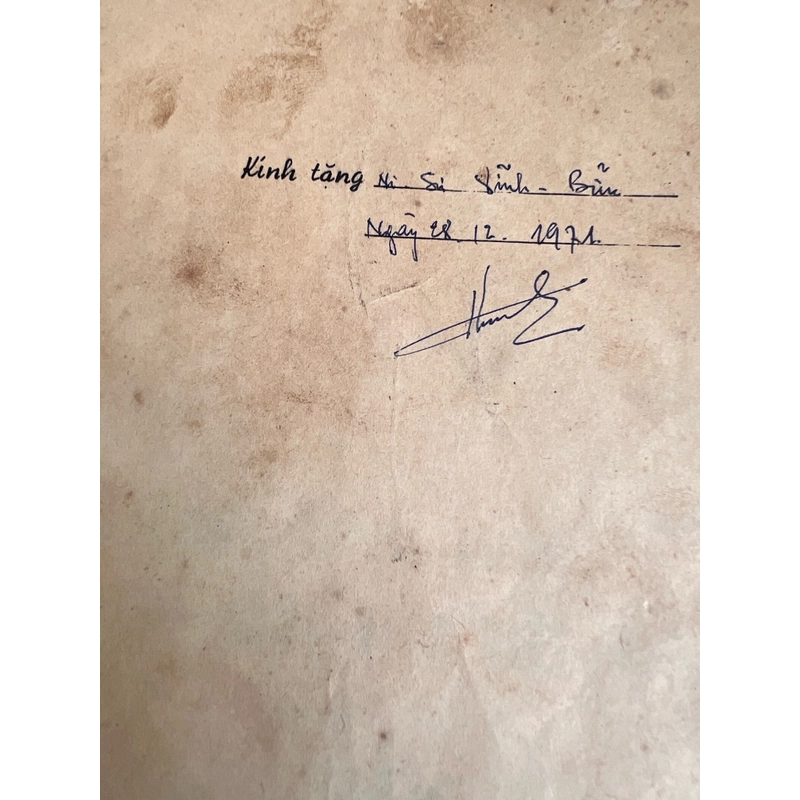 Kính tặng Ni Sư Vĩnh - Bửu
Ngày 28. 12. 1971.